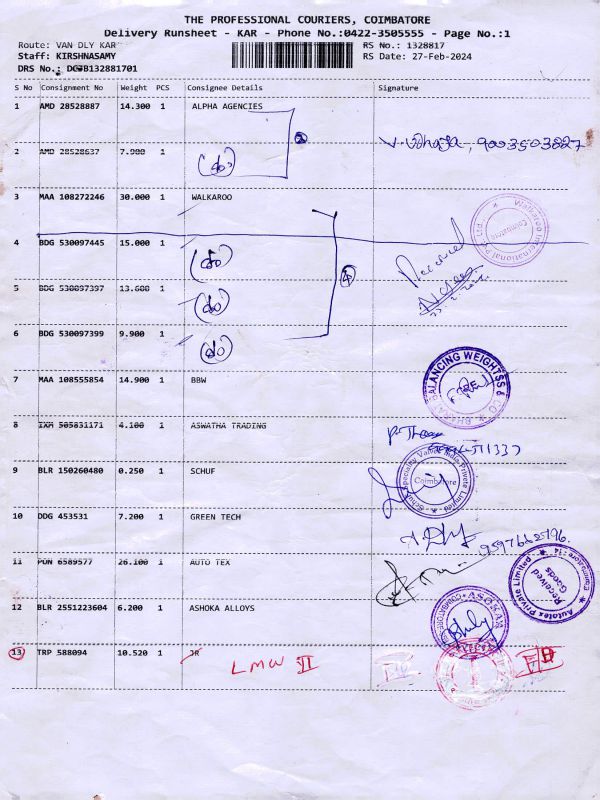 THE PROFESSIONAL COURIERS, COIMBATORE
Delivery Runsheet - KAR - Phone No.:0422-3505555 - Page No.:1
Route: VAN DLY KAR
RS No.: 1328817
Staff: KIRSHNASAMY
RS Date: 27-Feb-2024
DRS No.: DGJB132881701
S No Consignment No Weight PCS Consignee Details Signature
1 AMD 28528887 14.300 1 ALPHA AGENCIES
2 AMD 28528637 7.900 1 (do) 9003503827
3 MAA 108272246 30.000 1 WALKAROO
Walkaroo International Pvt Ltd Coimbatore
4 BDG 530097445 15.000 1 (do) Received
5 BDG 530097397 13.600 1 (do)
6 BDG 530097399 9.900 1 (do)
7 MAA 108555854 14.900 1 BBW
BALANCING WEIGHTSS & CO
8 IXM 505831171 4.100 1 ASWATHA TRADING
9 BLR 150260480 0.250 1 SCHUF
Schuf Speciality Valves India Private Limited Coimbatore
10 DDG 453531 7.200 1 GREEN TECH
11 PUN 6589577 26.100 1 AUTO TEX
Autotex Private Limited Coimbatore-14 Received Goods
12 BLR 2551223604 6.200 1 ASHOKA ALLOYS
13 TRP 588094 10.520 1 JR LMW II